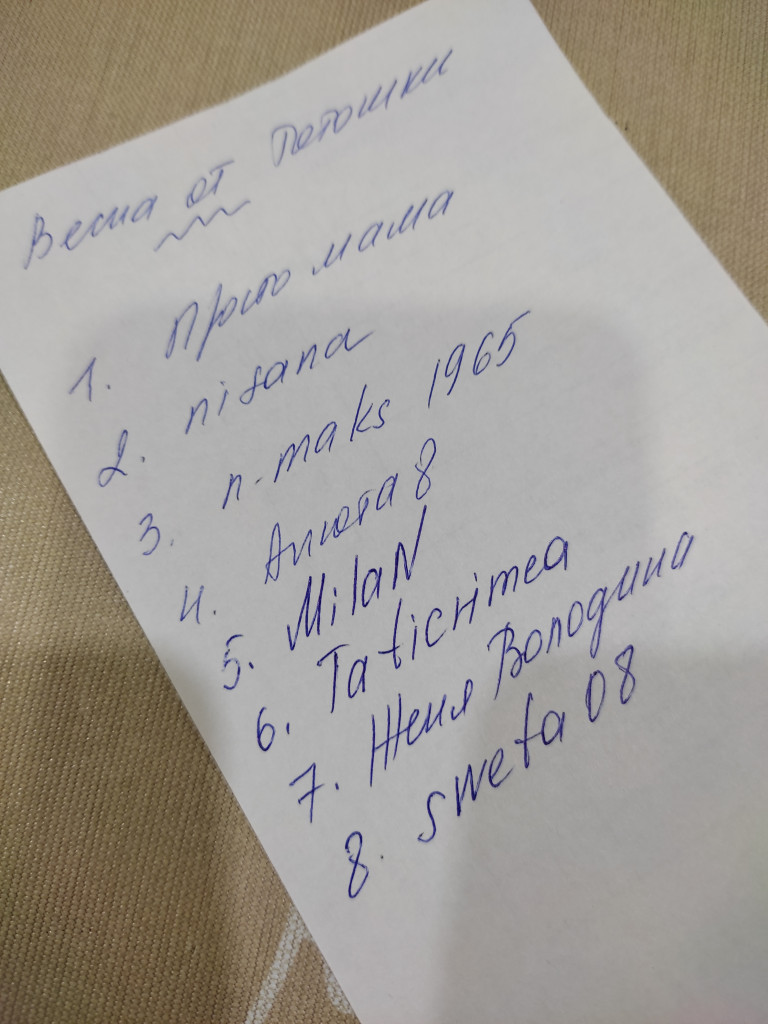 Весна от Тотошки
1. Просто мама
2. nifana
3. n-maks 1965
4. Анюта 8
5. MilaN
6. Taticrimea
7. Женя Володина
8. sweta 08